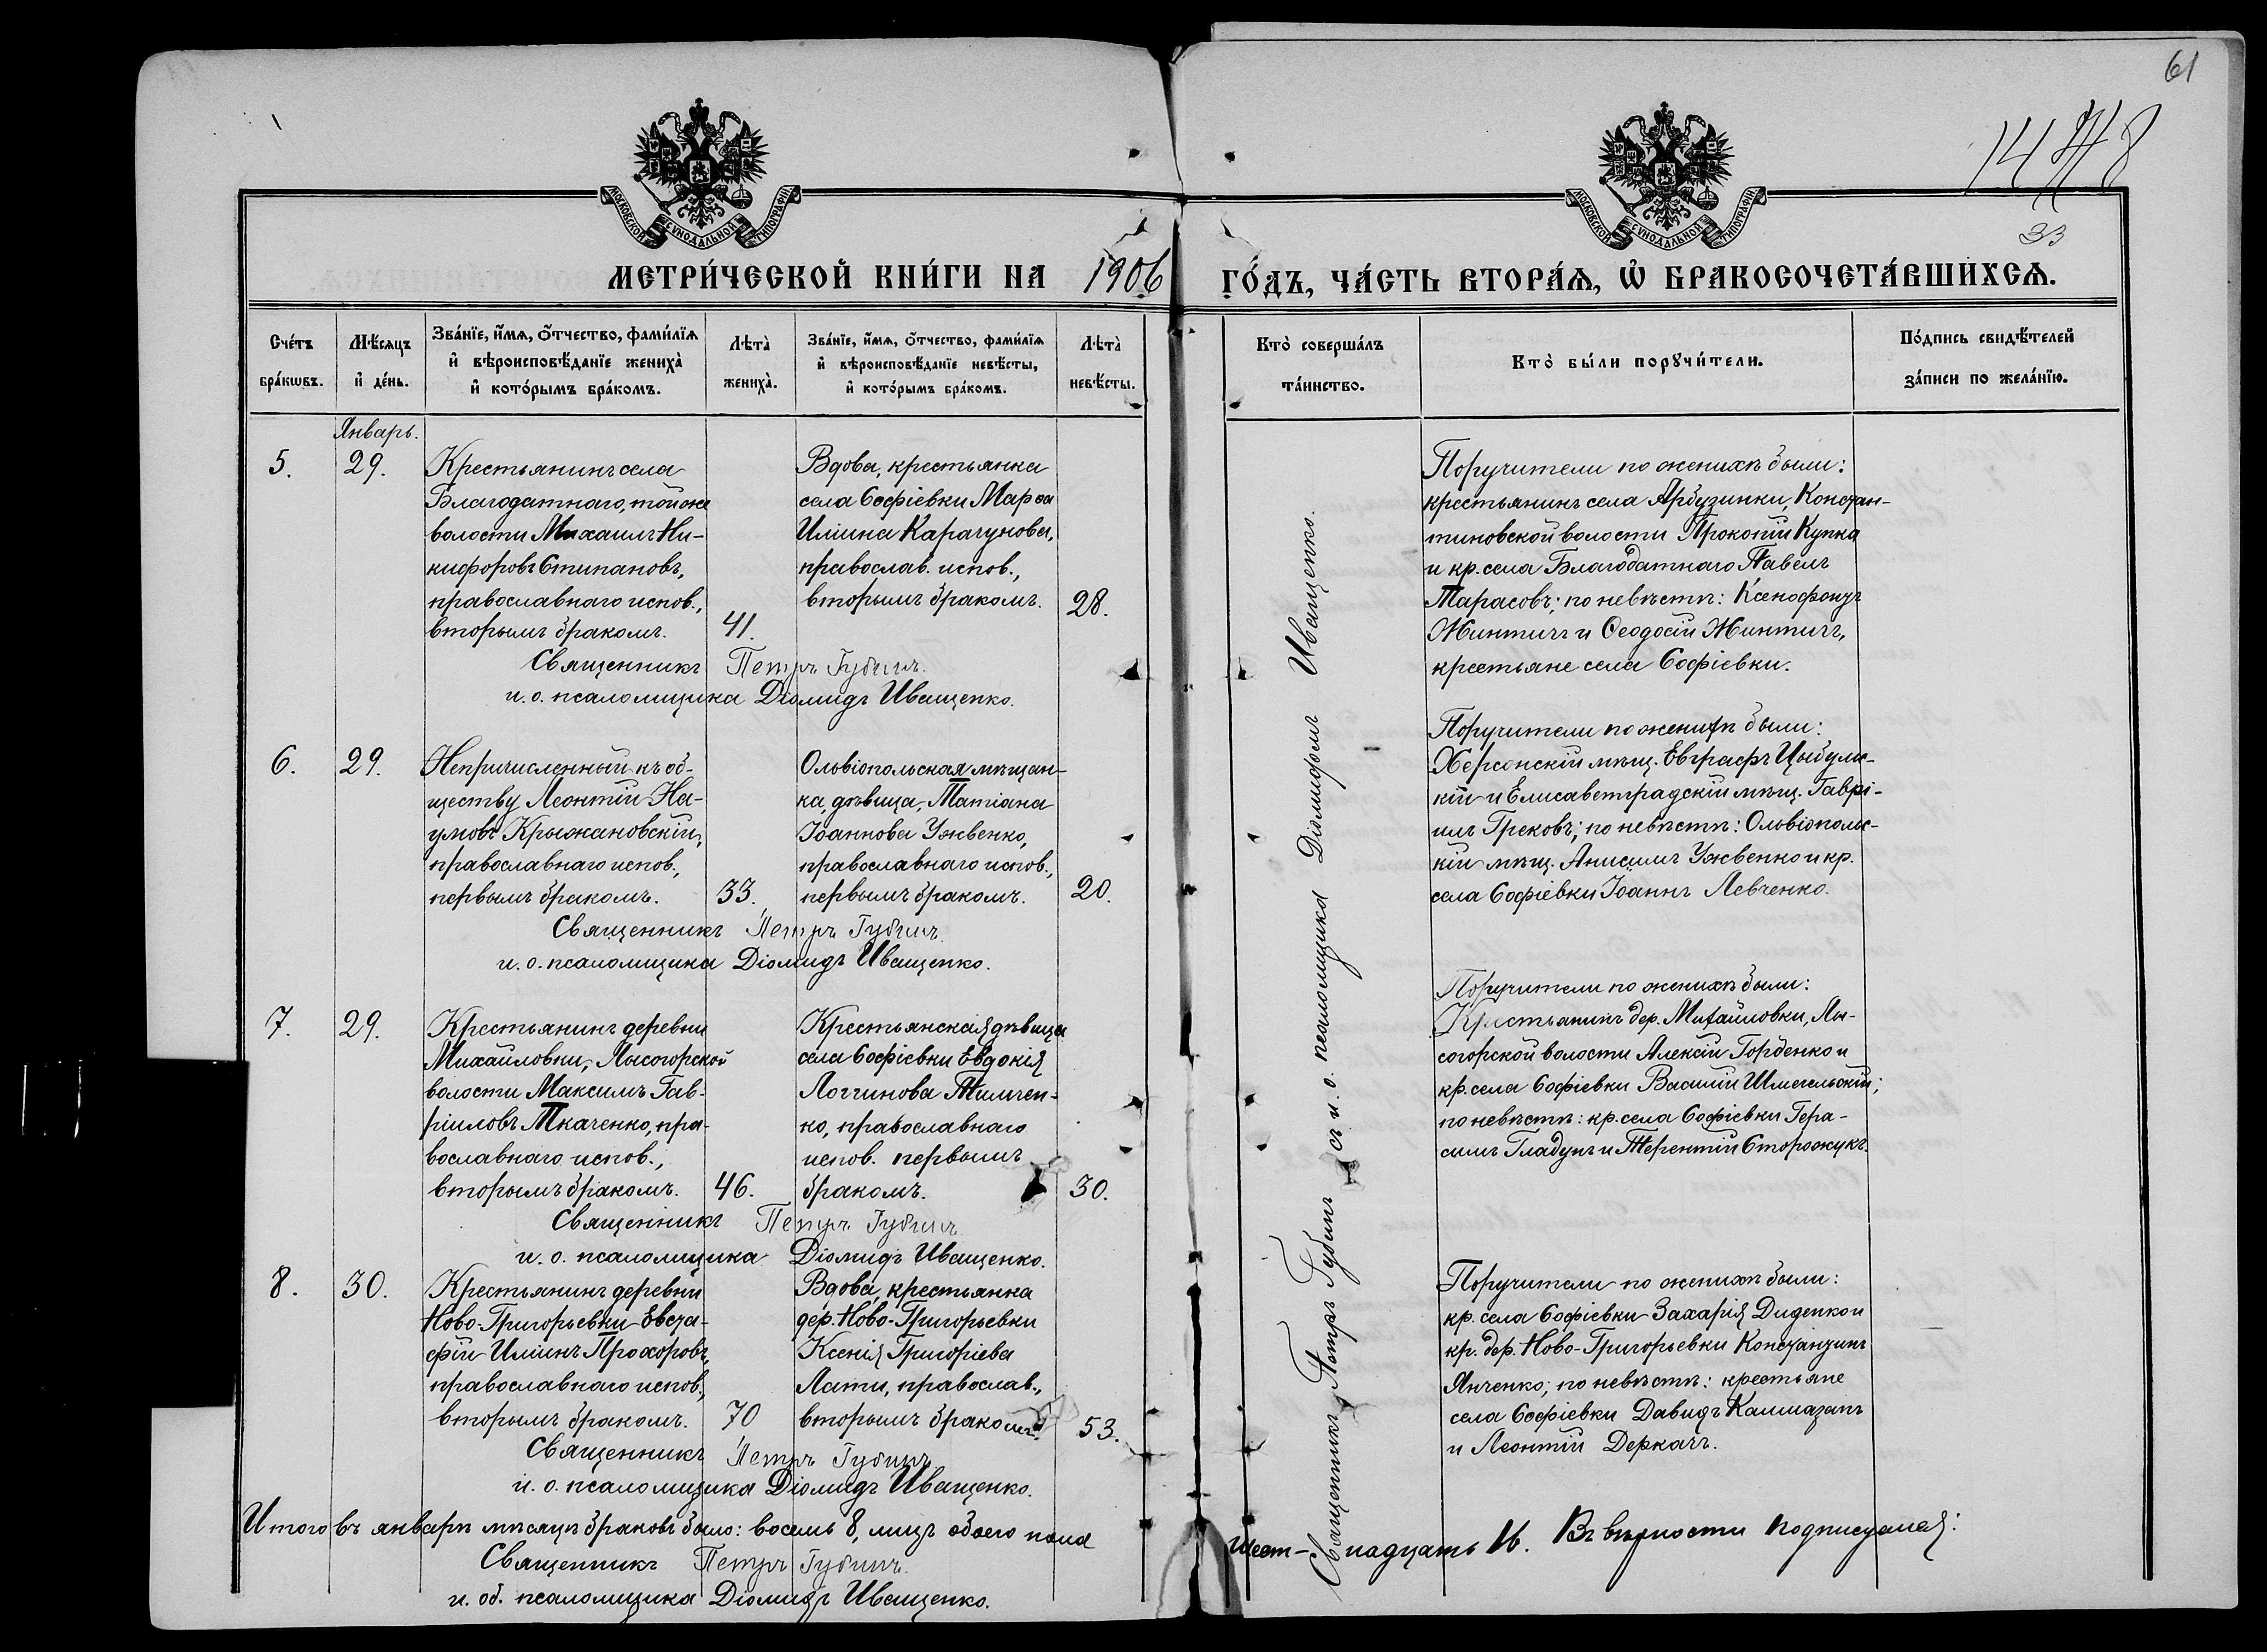 61
14
33
МОСКОВСКОЙ СѴНОДАЛЬНОЙ ТИПОГРАФІИ
МОСКОВСКОЙ СѴНОДАЛЬНОЙ ТИПОГРАФІИ
МЕТРИ́ЧЕСКОЙ КНИ́ГИ НА 1906 ГО́ДЪ, ЧА́СТЬ ВТОРА́Ѧ, Ѡ҆ БРАКОСОЧЕТА́ВШИХСѦ.
Сче́тъ бра́кѡвъ.
Мѣ́сѧцъ и҆ де́нь.
Зва́нїе, и҆́мѧ, о҆́тчество, фами́лїѧ и҆ вѣроисповѣ́данїе жениха̀ и҆ кото́рымъ бра́комъ.
Лѣта̀ жениха̀.
Зва́нїе, и҆́мѧ, о҆́тчество, фами́лїѧ и҆ вѣроисповѣ́данїе невѣ́сты, и҆ кото́рымъ бра́комъ.
Лѣта̀ невѣ́сты.
Кто̀ соверша́лъ та́инство.
Кто̀ бы́ли порꙋчи́тели.
По́дпись свидѣ́телей за́писи по жела́нїю.
Январь.
5.
29.
Крестьянинъ села
Благодатнаго, той же
волости Михаилъ Ни-
кифоровъ Стипановъ,
православнаго испов.,
вторымъ бракомъ.
41.
Вдова, крестьянка
села Софіевки Марѳа
Иліина Карагунова,
православ. испов.,
вторымъ бракомъ.
28.
Священникъ Петръ Губинъ.
и. о. псаломщика Діомидъ Иващенко.
Поручители по женихѣ были:
крестьянинъ села Арбузинки, Констан-
тиновской волости Прокопій Купка
и кр. села Благодатнаго Павелъ
Тарасовъ; по невѣстѣ: Ксенофонтъ
Жинтичъ и Ѳеодосій Жинтичъ,
крестьяне села Софіевки.
6.
29.
Непричисленный къ об-
ществу Леонтій На-
умовъ Крыжановскій,
православнаго испов.,
первымъ бракомъ.
33.
Ольвіопольская мѣщан-
ка, дѣвица, Татіана
Іоаннова Ужвенко,
православнаго испов.,
первымъ бракомъ.
20.
Священникъ Петръ Губинъ
и. о. псаломщика Діомидъ Иващенко.
Поручители по женихѣ были:
Херсонскій мѣщ. Евграфъ Цыбуль-
кій и Елисаветградскій мѣщ. Гаврі-
илъ Грековъ; по невѣстѣ: Ольвіополь-
кій мѣщ. Анисимъ Ужвенко и кр.
села Софіевки Іоаннъ Левченко.
7.
29.
Крестьянинъ деревни
Михайловки, Лысогорской
волости Максимъ Гав-
ріиловъ Ткаченко, пра-
вославнаго испов.,
вторымъ бракомъ.
46.
Крестьянская дѣвица
села Софіевки Евдокія
Логгинова Тимчен-
ко, православнаго
испов. первымъ
бракомъ.
30.
Священникъ Петръ Губинъ
и. о. псаломщика Діомидъ Иващенко.
Поручители по женихѣ были:
Крестьянинъ дер. Михайловки, Лы-
согорской волости Алексій Горденко и
кр. села Софіевки Василій Шмигельскій;
по невѣстѣ: кр. села Софіевки Гера-
симъ Гладунъ и Терентій Сторожукъ.
8.
30.
Крестьянинъ деревни
Ново-Григорьевки Евста-
фій Иліинъ Прохоровъ,
православнаго испов.,
вторымъ бракомъ.
70
Вдова, крестьянка
дер. Ново-Григорьевки
Ксенія Григоріева
Лати, православ.,
вторымъ бракомъ.
53.
Священникъ Петръ Губинъ
и. о. псаломщика Діомидъ Иващенко.
Поручители по женихѣ были:
кр. села Софіевки Захарія Диденко и
кр. дер. Ново-Григорьевки Константинъ
Янченко; по невѣстѣ: крестьяне
села Софіевки Давидъ Калмазанъ
и Леонтій Деркачъ.
Священникъ Петръ Губинъ съ и. о. псаломщика Діомидомъ Иващенко.
Итого въ январѣ мѣсяцѣ браковъ было: восемь 8, лицъ обоего пола шест-надцать 16. Въ вѣрности подписуемся:
Священникъ Петръ Губинъ.
и. об. псаломщика Діомидъ Иващенко.